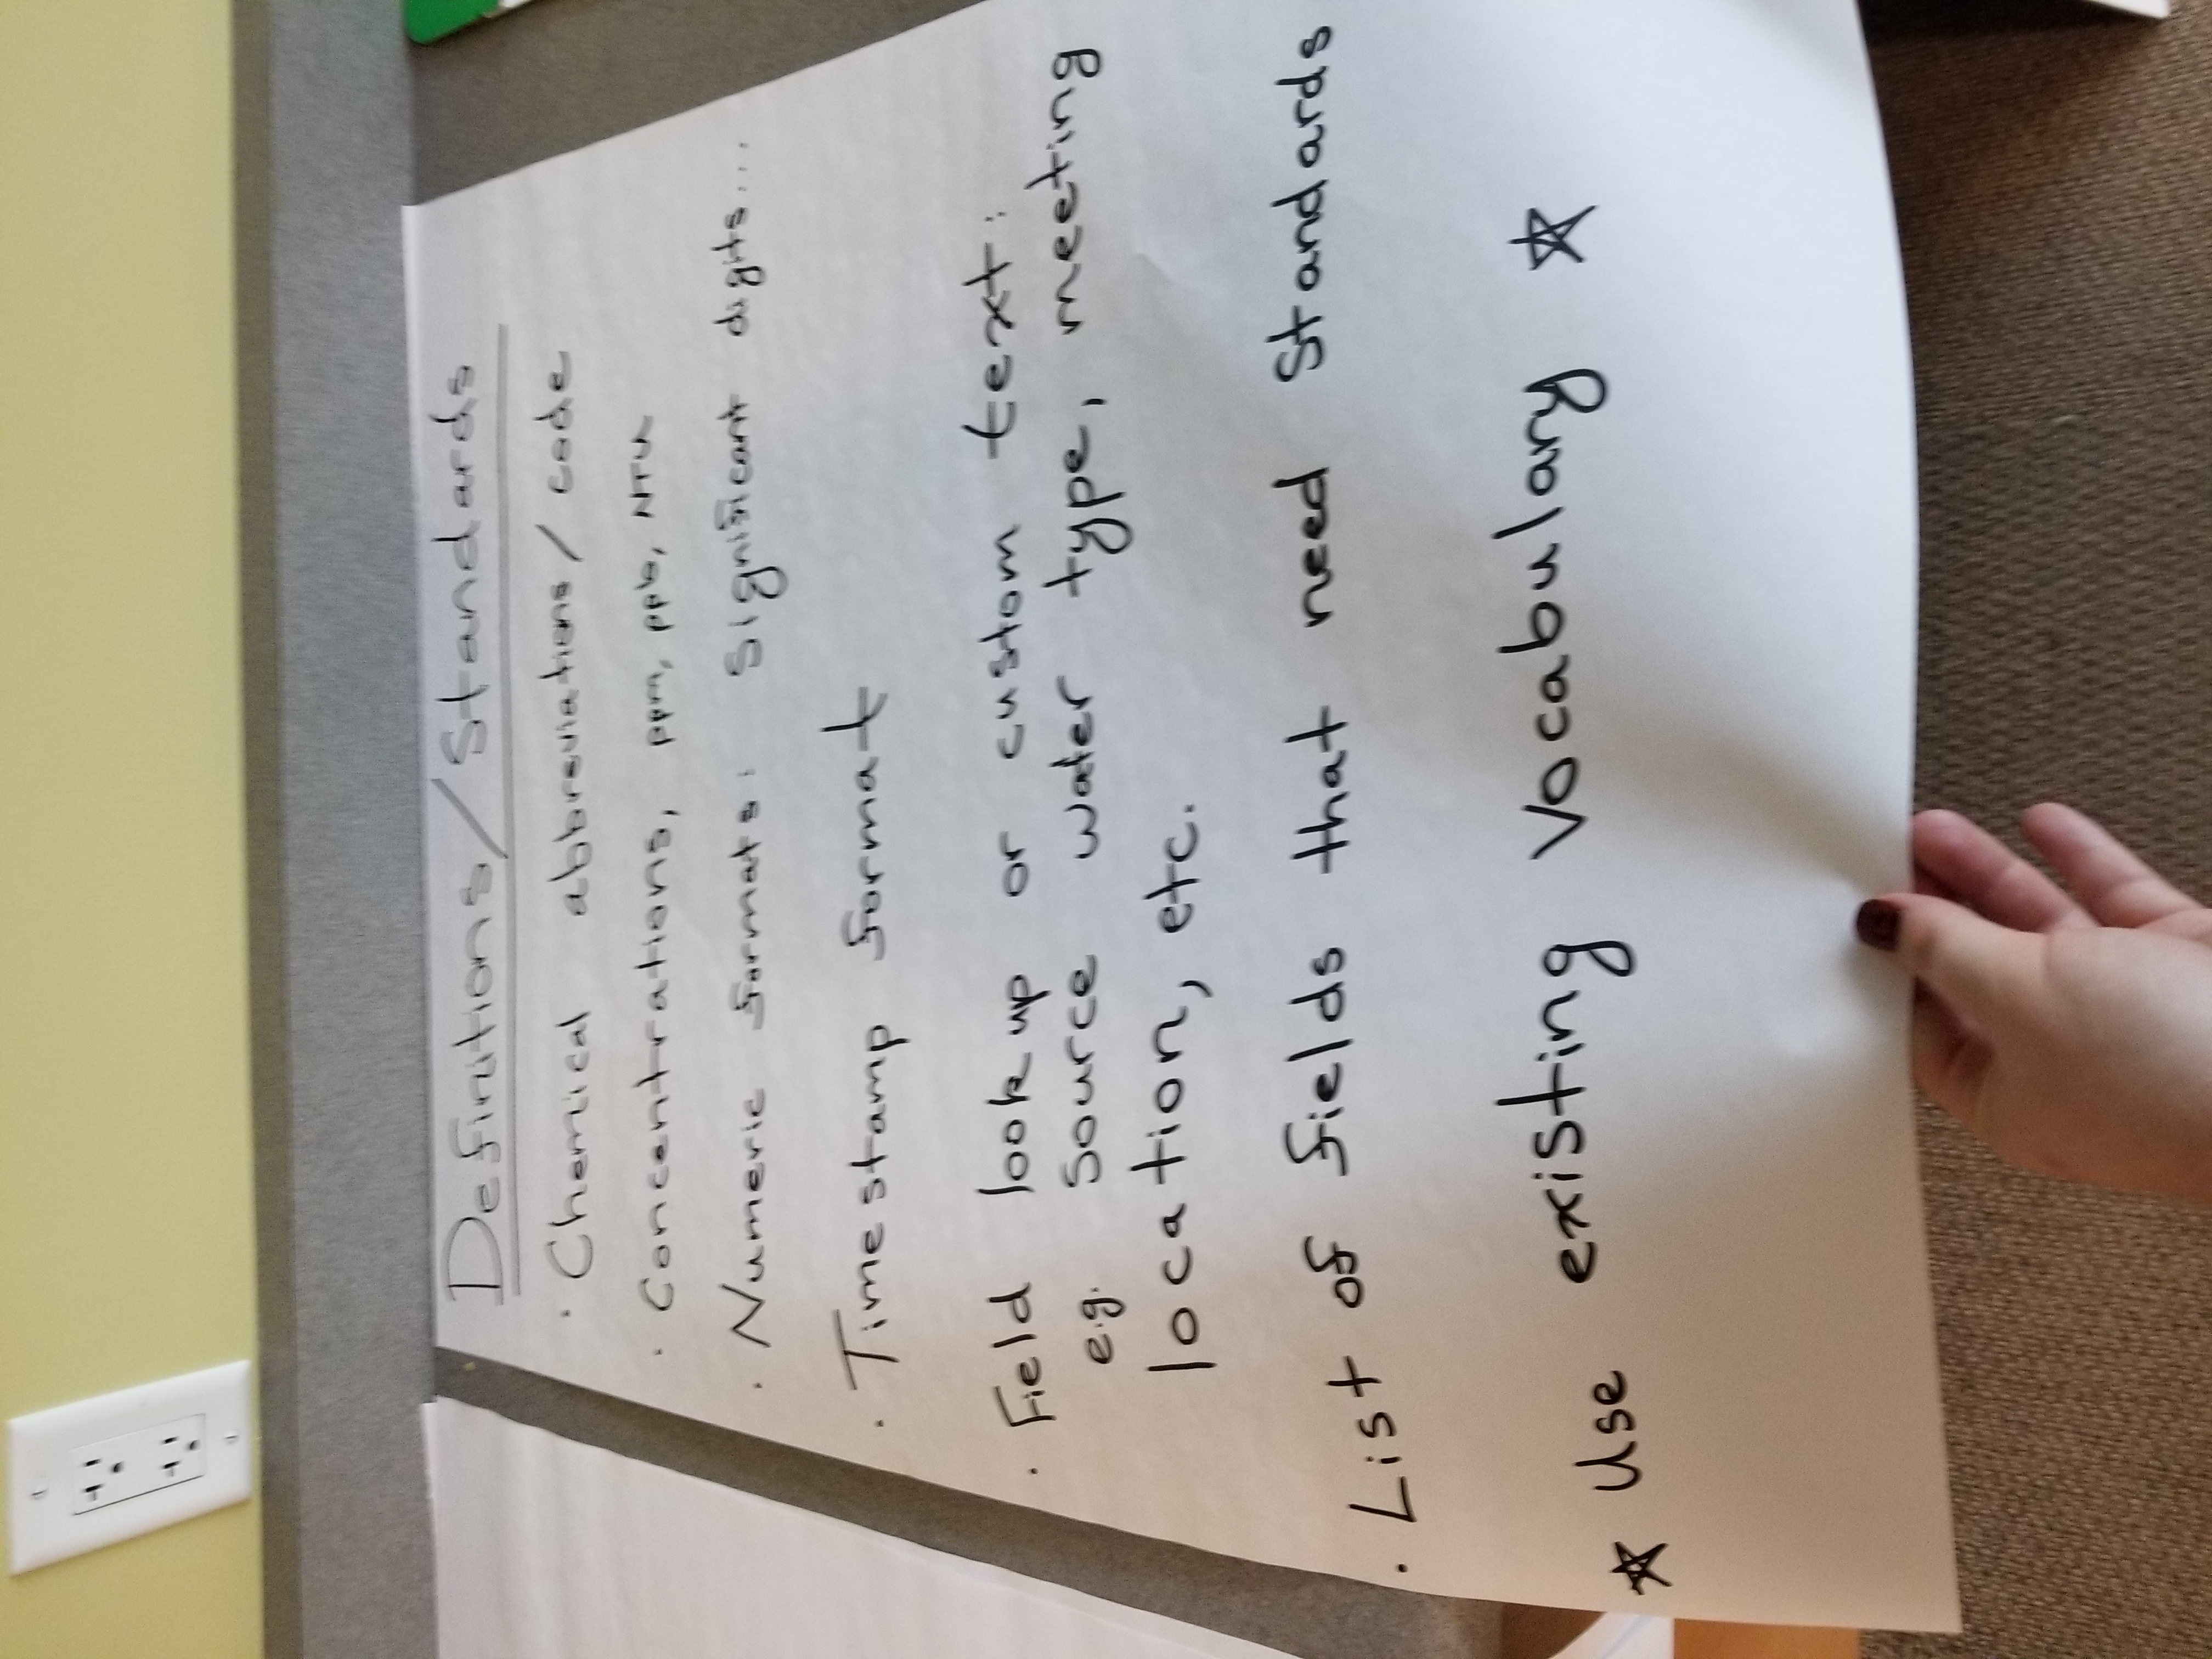 Definitions/Standards
· Chemical abbreviations/code
· Concentrations, ppm, ppb, NTU
· Numeric formats: Significant digits...
· Timestamp format
· Field look up or custom text:
e.g. source water type, meeting
location, etc.
· List of fields that need standards
☆ Use existing vocabulary ☆